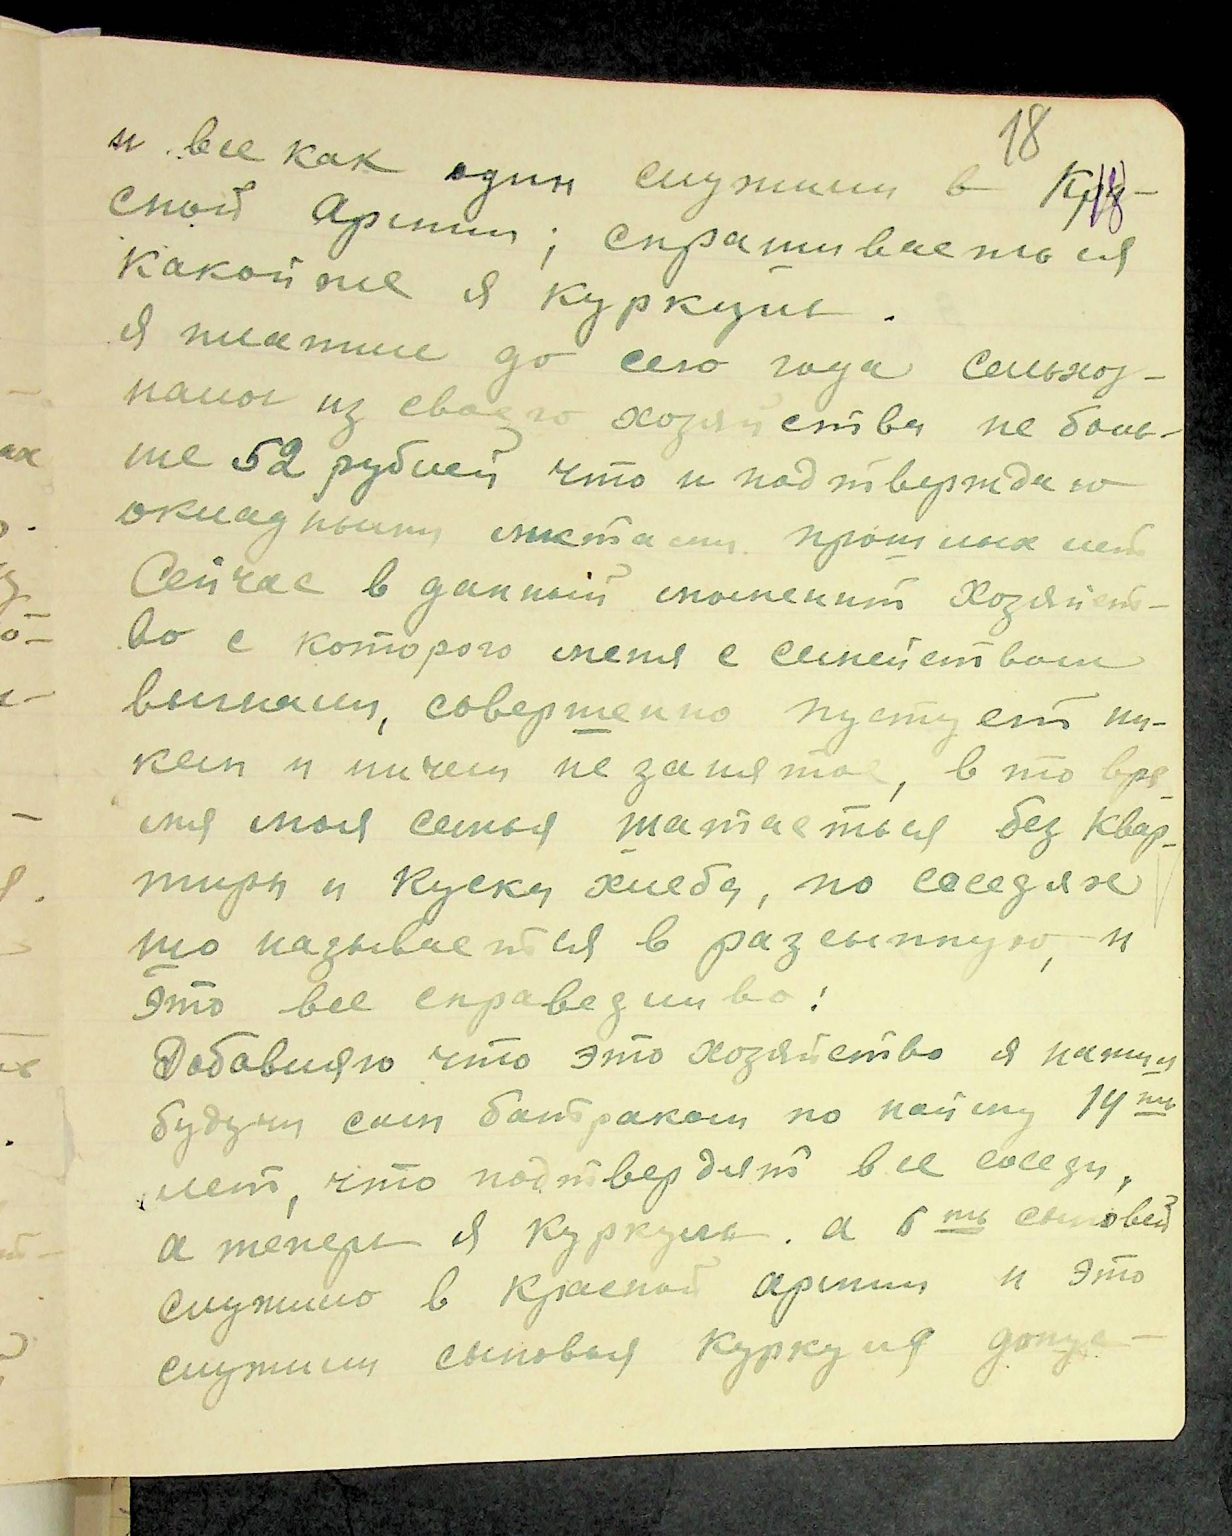 18
и все как один служили в Кра-
18
сной армии; спрашиваеться
какой же я куркуль.
я платил до сего года сельхоз-
налог из своего хозяйства не боль-
ше 52 рублей что и подтверждаю
окладными листами прошлых лет
Сейчас в данный момент хозяйст-
во с которого меня с семейством
выгнали, совершенно пустует ни-
кем и ничем не занятое, в то вре-
мя моя семья шатаеться без квар-
тиры и куска хлеба, по соседях
што называется в разсыпную, и
это все справедливо!
Добавляю что это хозяйство я нажил
будучи сам батраком по найму 14ть
лет, что подтвердят все соседи,
а теперь я куркуль. а 5ть сыновей
служило в красной армии и это
служили сыновья куркуля допус-